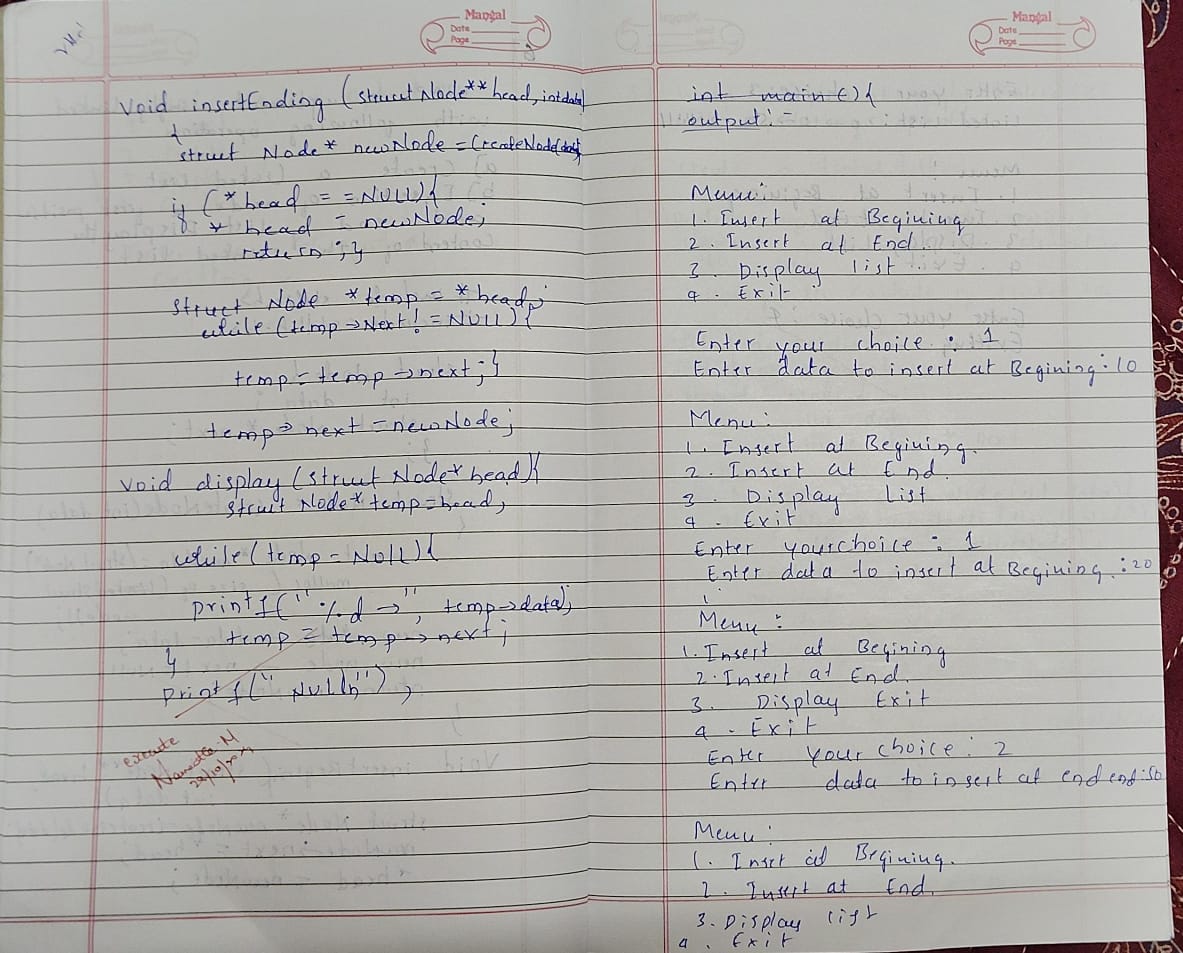 Mangal
Date
Page
Void insertEnding (struct Node** head, int data)
{
struct Node* newNode = CreateNode(data);
if (*head = = NULL){
* head = newNode;
return ; }
struct Node *temp = *head;
while (temp→Next! = NULL){
temp = temp→next; }
temp→next = newNode;
void display (struct Node* head){
struct Node* temp=head;
while (temp = NULL){
printf(" %d →", temp→data);
temp = temp→next;
}
printf(" NULL\n");
execute
Mangal
Date
Page
int main () {
output: -
Menu:
1. Insert at Begining
2. Insert at End.
3. Display list
4. Exit
Enter your choice : 1
Enter data to insert at Begining : 10
Menu:
1. Insert at Begining.
2. Insert at End.
3. Display List
4. Exit
Enter your choice : 1
Enter data to insert at Begining. : 20
Menu :
1. Insert at Begining
2. Insert at End.
3. Display Exit
4. Exit
Enter your choice : 2
Enter data to insert at end end : 50
Menu:
1. Insert at Begining.
2. Insert at End.
3. Display list
4. Exit